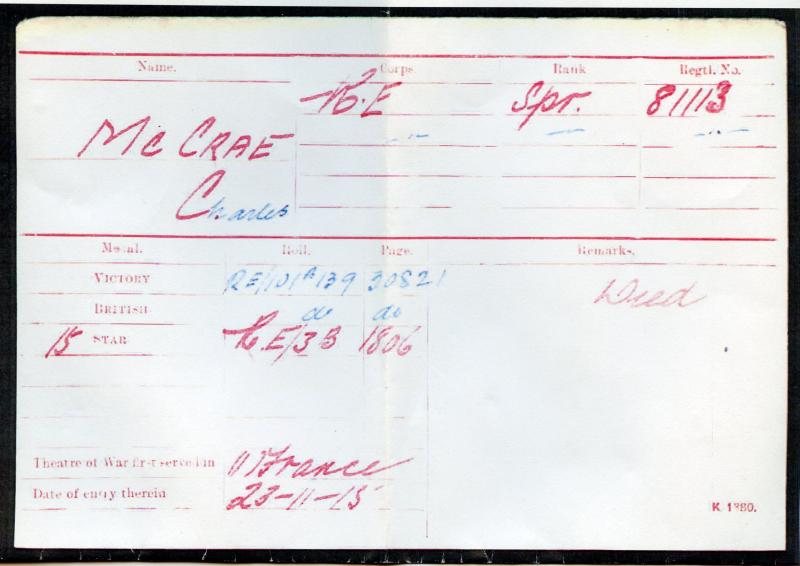 Name. Corps. Rank Regtl. No.
R.E Spr. 81113
McCRAE -"- -"-
Charles
Medal. Roll. Page. Remarks.
VICTORY RE/101B139 30821
BRITISH do do Died
15 STAR R.E/3B 1806
Theatre of War first served in (1) France
Date of entry therein 23-11-15
K. 1380.